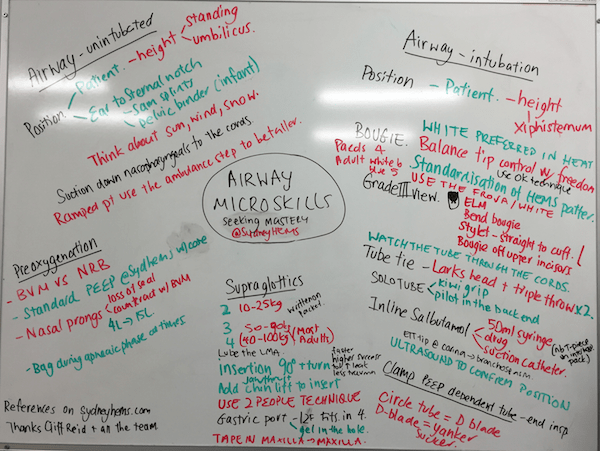 Airway - unintubated
Position
Patient - height
standing
umbilicus.
Ear to sternal notch
Sam splints
pelvic binder (infant)
Think about sun, wind, snow.
Suction down nasopharyngeals to the cords.
Ramped pt use the ambulance step to be taller.
Preoxygenation
- BVM VS NRB
- Standard PEEP @Sydhems w/ care
- Nasal prongs
loss of seal
counteract w/ BVM
4L → 15L
- Bag during apnoeic phase at times
References on sydneyhems.com
Thanks Cliff Reid + all the team
AIRWAY
MICROSKILLS
SEEKING MASTERY
@SydneyHEMS
Supraglottics
2 10-25kg written on packet.
3 50-90kg (Most
4 (40-100kg) Adults)
Lube the LMA.
Insertion 90° + turn
faster
higher success
less trauma
jawthrust
Add chin lift to insert
USE 2 PEOPLE TECHNIQUE
Gastric port - 12F fits in 4.
gel in the hole.
TAPE IN MAXILLA → MAXILLA.
Airway - intubation
Position - Patient. - height
Xiphisternum
BOUGIE.
Paeds 4
Adult white 6
blue 5
WHITE PREFERRED IN HEAT
Balance tip control w/ freedom
use OK technique
Standardisation of HEMS patter.
USE THE FROVA / WHITE
Grade III view.
ELM
Bend bougie
Stylet - straight to cuff.
Bougie off upper incisors
WATCH THE TUBE THROUGH THE CORDS.
Tube tie - Larks head + triple throw x2.
SOLO TUBE
kiwi grip
pilot in the back end
Inline Salbutamol
50ml syringe
drug
suction catheter.
(nb T-piece in interhosp pack)
ETT tip @ carina → bronchospasm.
ULTRASOUND TO CONFIRM POSITION
Clamp PEEP dependent tube - end insp.
Circle tube = D blade
D-blade = yanker
sucker.